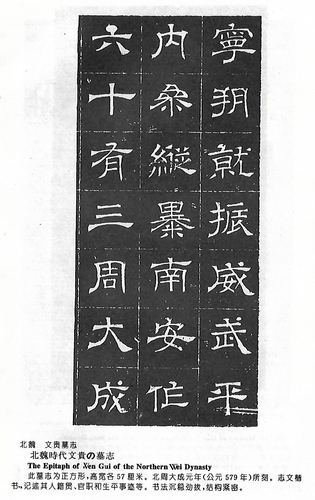 寧朔就振威武平
内縱暴南安
六十有三周大成
北魏 文贵墓志
北魏時代文貴の墓志
The Epitaph of Wen Gui of the Northern Wei Dynasty
此墓志为正方形,高宽各57厘米。北周大成元年(公元579年)所刻。志文楷
书,记述其人籍贯、官职和生平事迹等。书法沉稳劲拔,结构紧密。